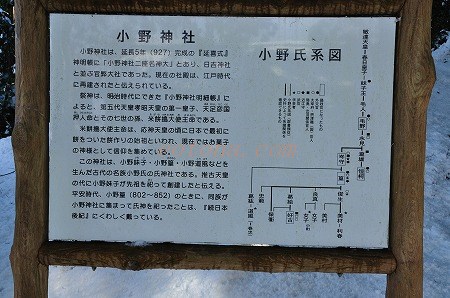 小野神社
小野神社は、延長5年（927）完成の『延喜式』
神明帳に「小野神社二座名神大」とあり、日吉神社
と並ぶ官弊大社であった。現在の社殿は、江戸時代
に再建されたと伝えられている。
祭神は、明治時代にできた『小野神社明細帳』に
よると、第五代天皇孝昭天皇の第一皇子、天足彦国
押人命とその七世の孫、米餅搗大使主命である。
米餅搗大使主命は、応神天皇の頃に日本で最初に
餅をついた餅作りの始祖といわれ、現在ではお菓子
の神様として信仰を集めている。
この神社は、小野妹子・小野篁・小野道風などを
生んだ古代の名族小野氏の氏神社である。推古天皇
の代に小野妹子が先祖を祀って創建したと伝える。
平安時代、小野篁（802〜852）のときに、同族が
小野神社に集まって氏神を祀ったことは、『続日本
後紀』にくわしく載っている。
小野氏系図
敏達天皇
春日皇子
妹子
毛人
毛野
永見
岑守
篁
葛絃
道風
好古
保衡
俊生
良真
美材
美村
女子
女子